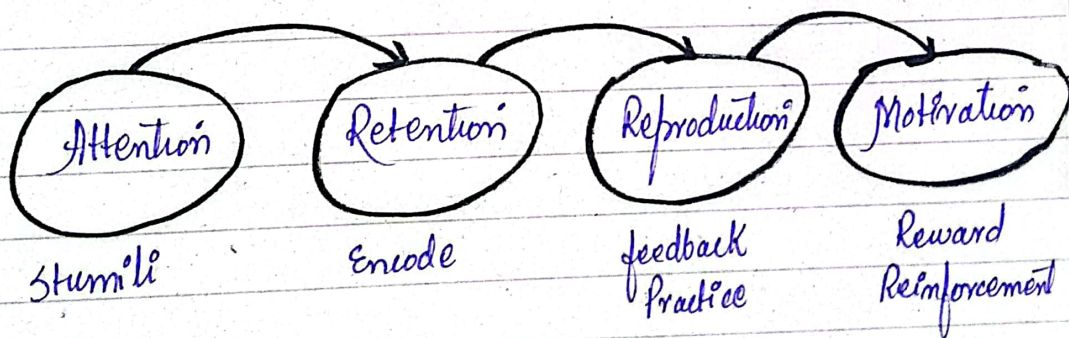 Attention
Retention
Reproduction
Motivation
Stumili
Encode
feedback
Practice
Reward
Reinforcement